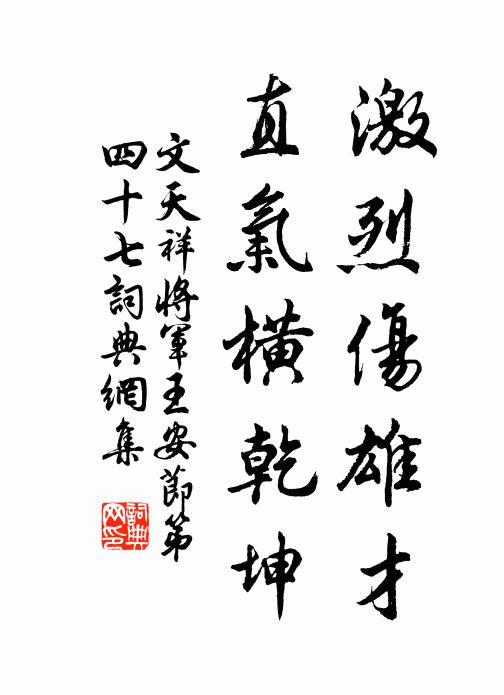 激烈傷雄才
直氣橫乾坤
文天祥將軍王安節第
四十七詞典網集
詞典
网印